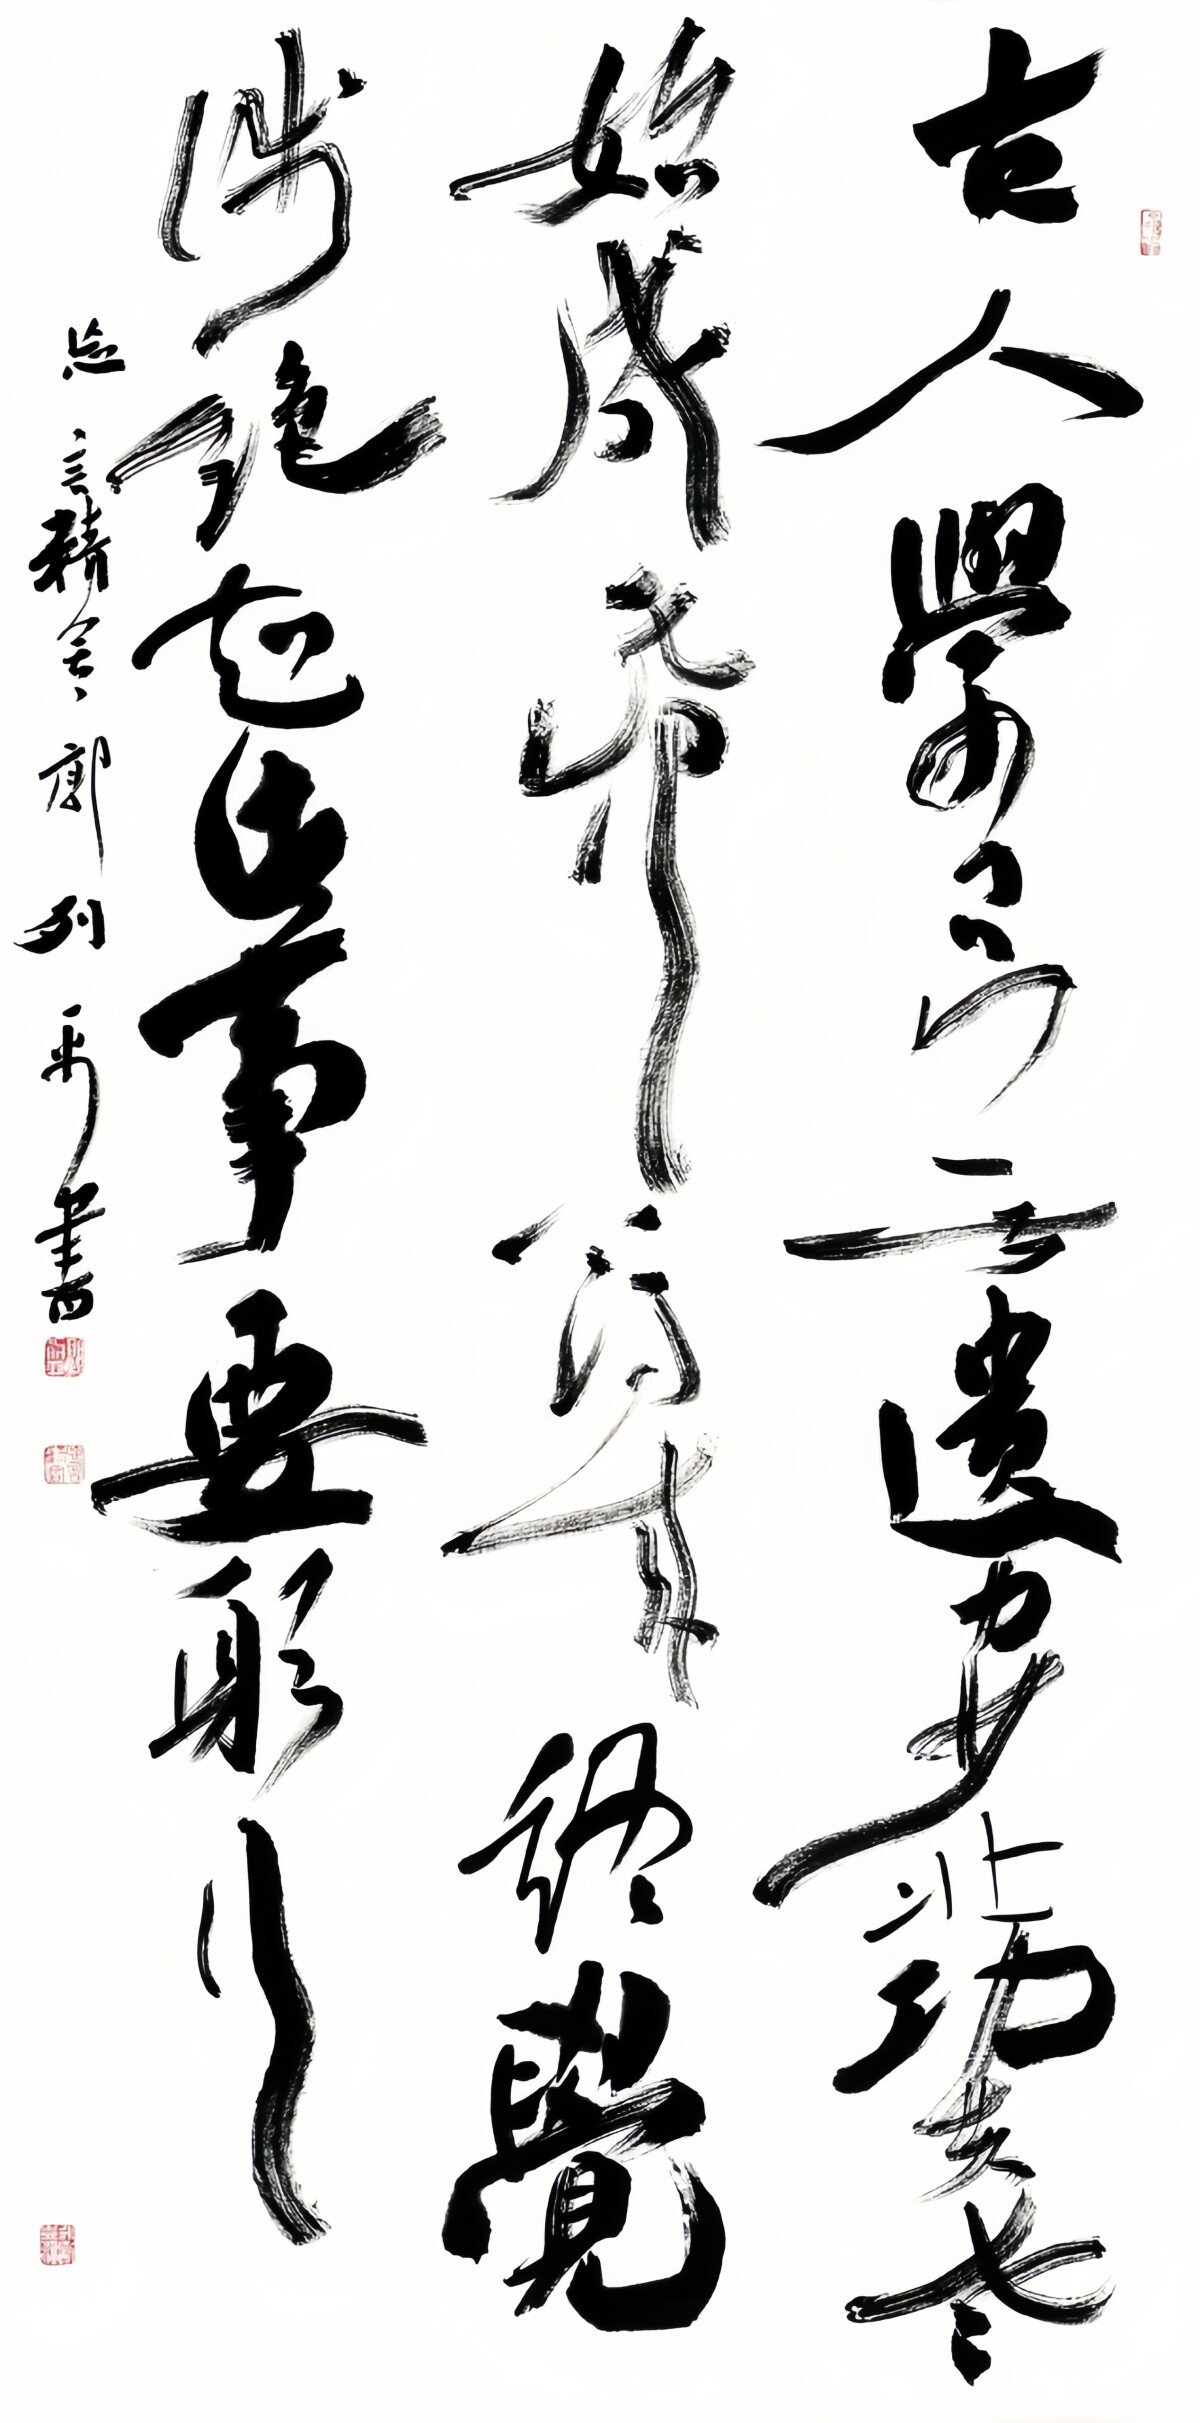 古人學問无遺力少壯功夫老
始成帋上得來終覺
淺絕知此事要躬行
忘言精舍郭列平書